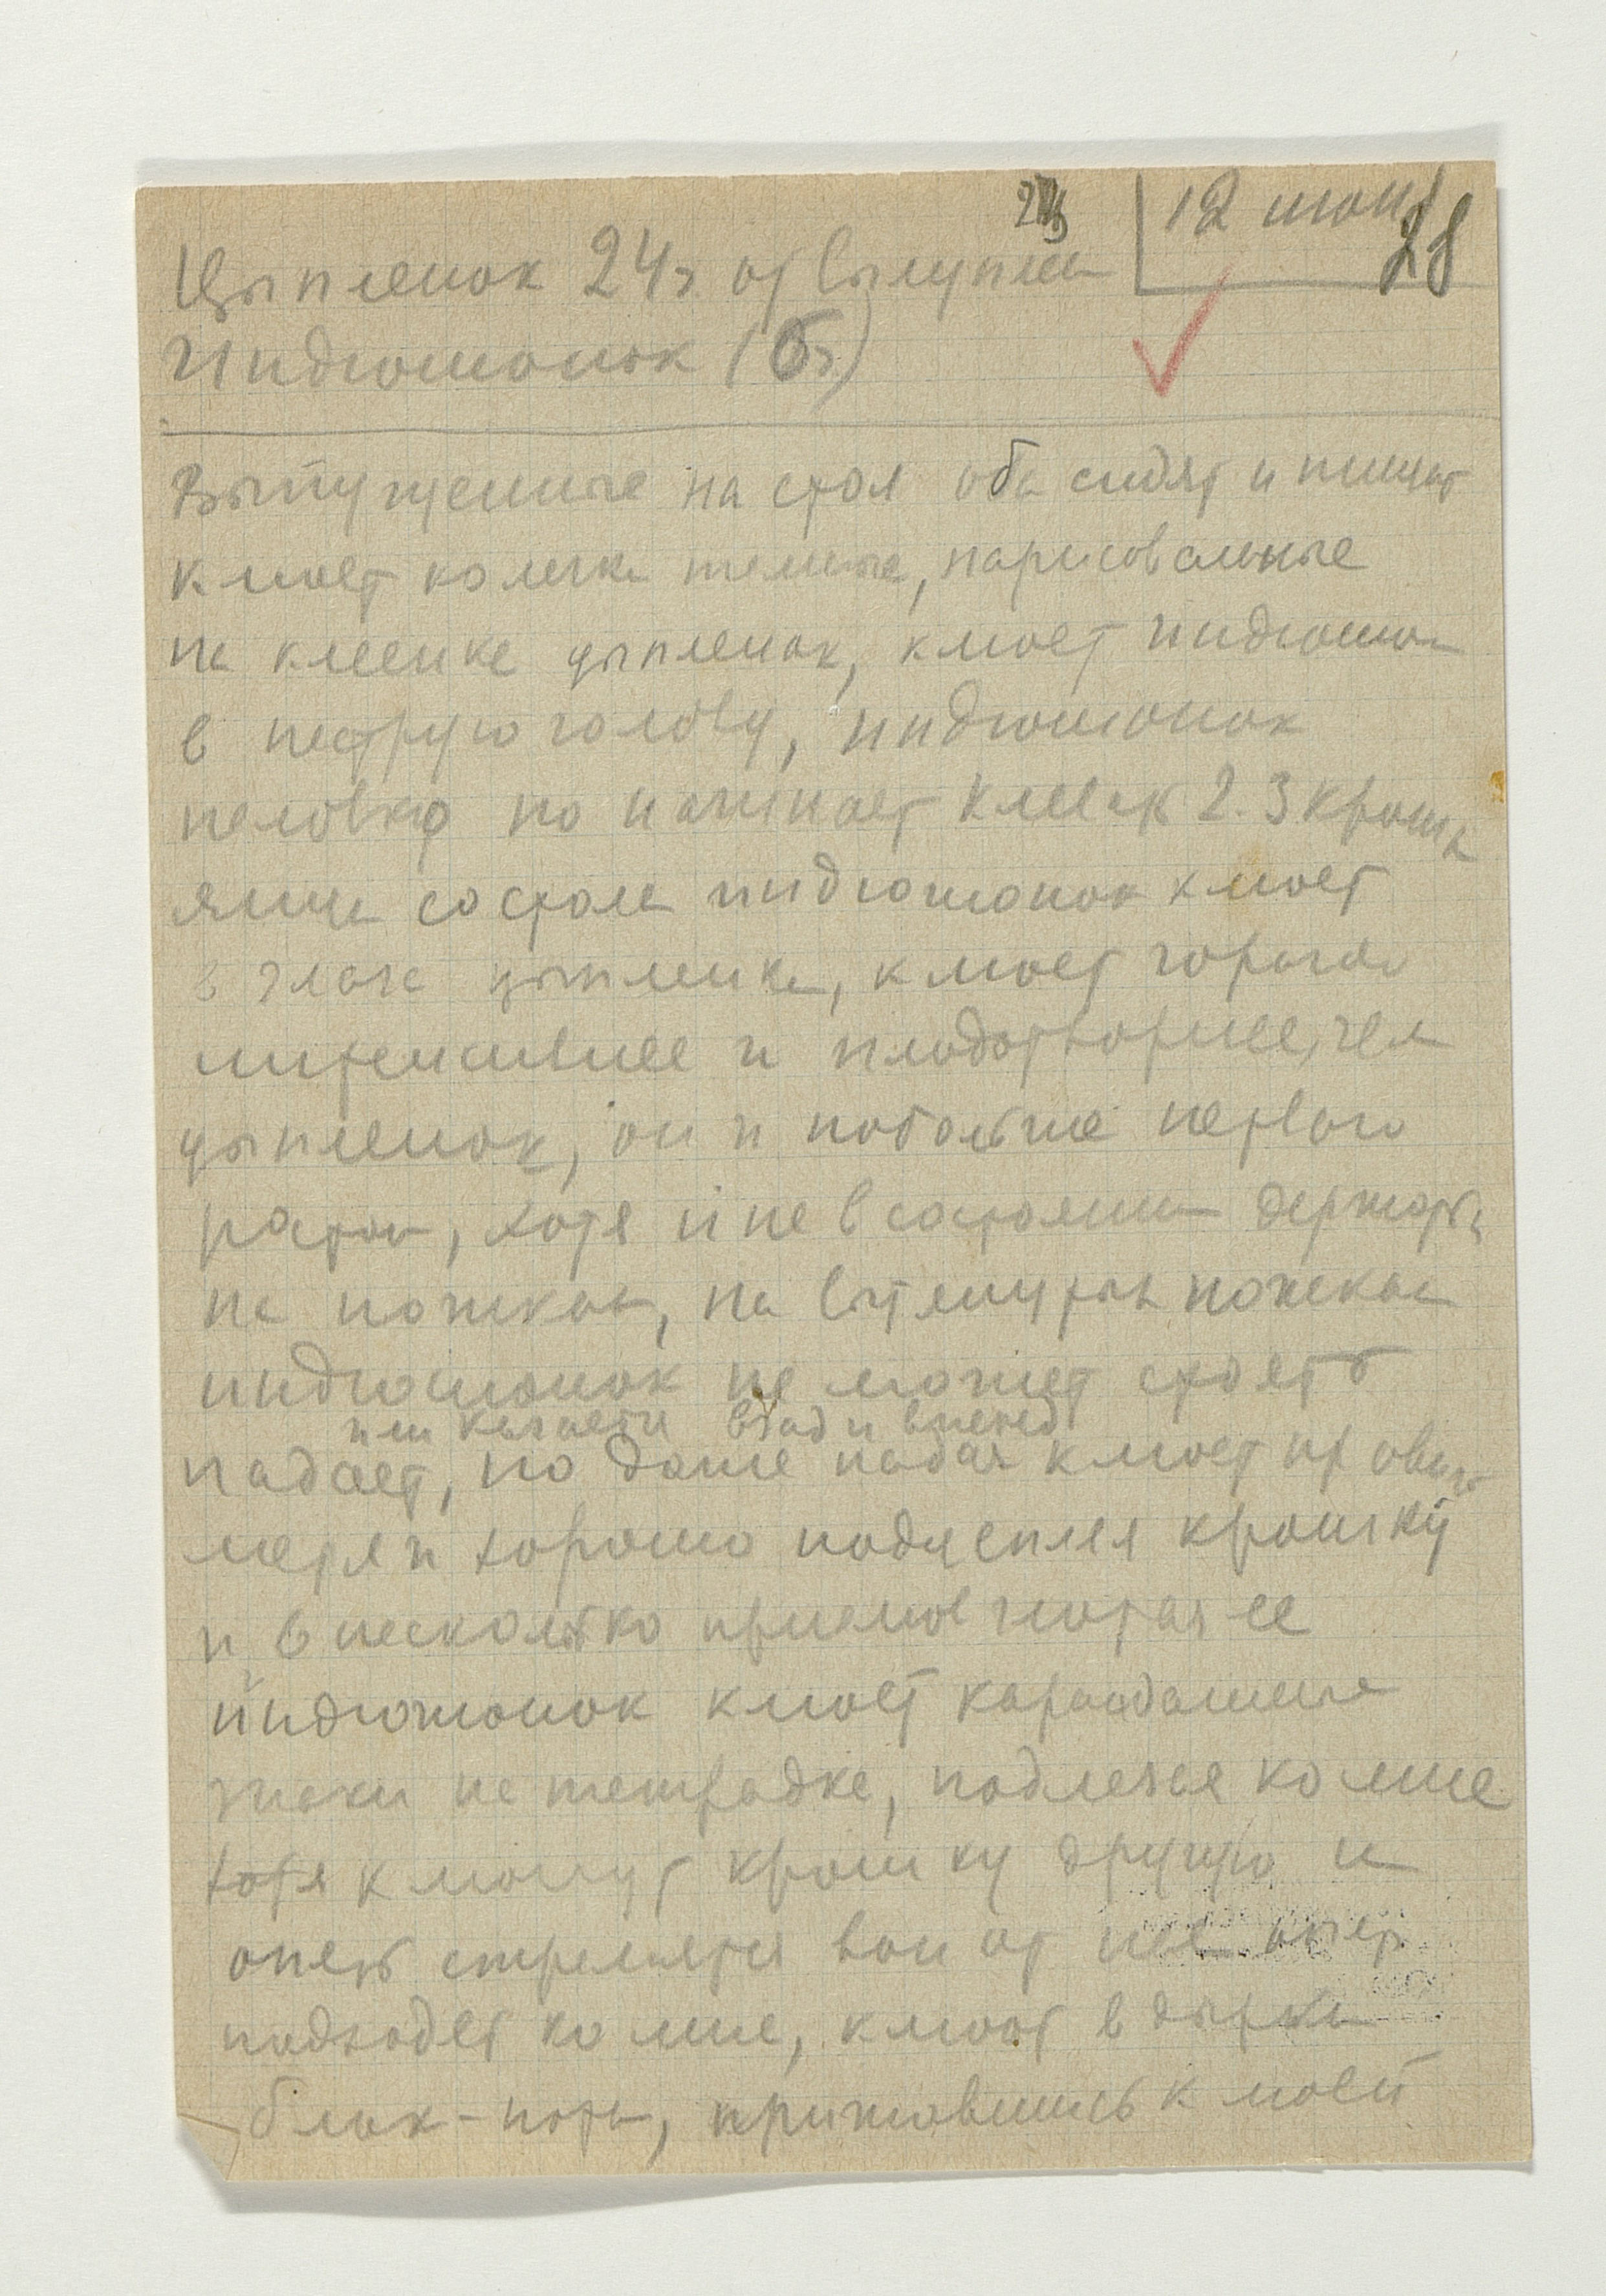 12 июня
28
Цыпленок 24ч. от вылупле
Индюшонок (6ч.)
Выпущенные на стол оба сидят и пищат
клюет колечки темные, нарисованные
на клеенке цыпленок, клюет индюшон
в пеструю голову, индюшонок
неловко но начинает клевать 2-3 крошк
яйца со стола индюшонок клюет
в глаза цыпленка, клюет гораздо
интенсивнее и плодотворнее, чем
цыпленок, он и побольше первого
ростом, хотя и не в состоянии держаться
на ножках, на вытянутых ножках
индюшонок не может стоять
или качается взад и вперед
падает, но даже падая клюет
метя и хорошо подцепляя крошку
и в несколько приемов глотая ее
Индюшонок клюет карандашные
знаки на тетрадке, подлезая ко мне
хотя клюнут крошку другую и
опять стремятся вон от нее опять
подходят ко мне, клюют в дырки
блок-нота, прижавшись к моей